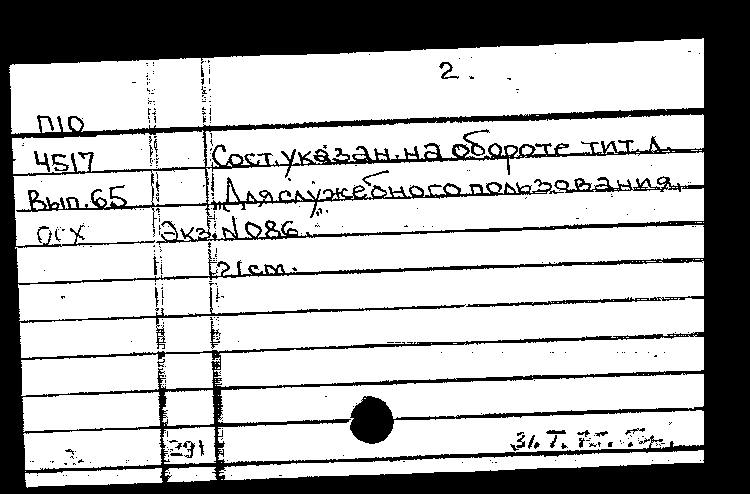 2.
П10
4517 Сост. указан. на обороте тит. л.
Вып. 65 „Для служебного пользования,
ОСХ Экз. N 086.
21 cm.
291